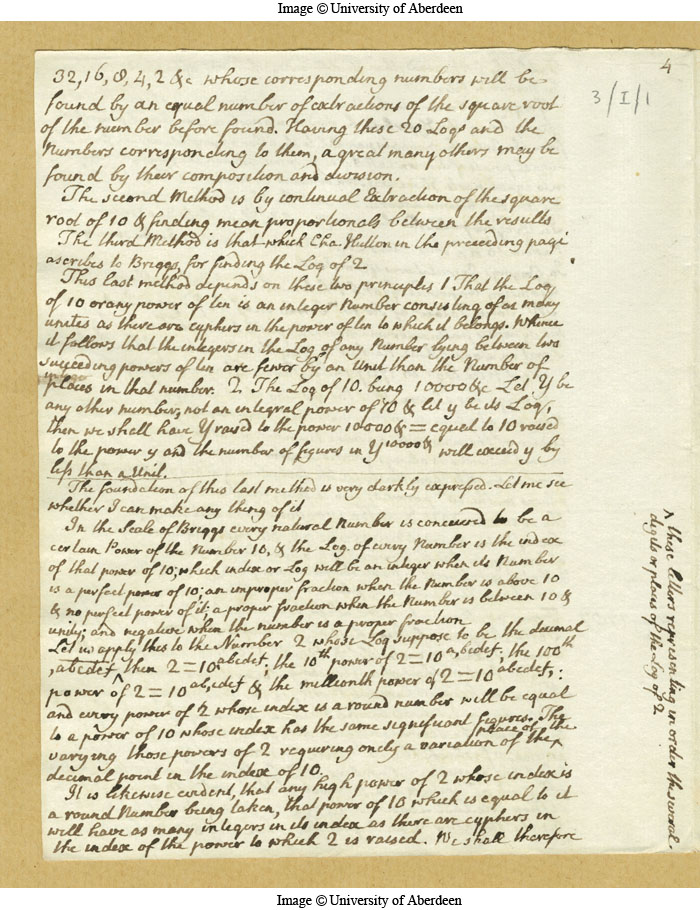 Image © University of Aberdeen
4
3/I/1
32, 16, 8, 4, 2 &c whose corresponding numbers will be
found by an equal number of extractions of the square root
of the number before found. Having these 20 Logs and the
Numbers corresponding to them, a great many others may be
found by their composition and division.
The second Method is by continual Extraction of the square
root of 10 & finding mean proportionals between the results
The third Method is that which Cha Hutton in the preceeding page
ascribes to Briggs, for finding the Log of 2
This last method depends on these two principles 1 That the Log
of 10 or any power of ten is an integer Number consisting of as many
unites as there are cyphers in the power of ten to which it belongs. Whence
it follows that the integers in the Log of any Number lying between two
succeeding powers of ten are fewer by an Unit than the Number of
places in that number. 2. The Log of 10. being 10000 &c Let Y be
any other number, not an integral power of 10 & let y be its Log,
then we shall have Y raised to the power 10000 &c = equal to 10 raised
to the power y and the number of figures in Y 10000 &c will exceed y by
less than a Unit.
The foundation of this last method is very darkly expressed. Let me see
whether I can make any thing of it
In the Scale of Briggs every natural Number is conceived to be a
certain Power of the Number 10, & the Log. of every Number is the index
of that power of 10; which index or Log will be an integer when its Number
is a perfect power of 10; an improper fraction when the Number is above 10
& no perfect power of it; a proper fraction when the Number is between 10 &
unity; and negative when the number is a proper fraction
Let us apply this to the Number 2 whose Log suppose to be the decimal
,abcdef ^ then 2 = 10 ,abcdef; the 10th power of 2 = 10 a,bcdef; the 100th
power of 2 = 10 ab,cdef & the millionth power of 2 = 10 abcdef,:
and every power of 2 whose index is a round number will be equal
to a power of 10 whose index has the same significant figures. The
varying those powers of 2 requiring onely a variation of the ^ place of the
decimal point in the index of 10.
It is likewise evident, that any high power of 2 whose index is
a round Number being taken, that power of 10 which is equal to it
will have as many integers in its index as there are cyphers in
the index of the power to which 2 is raised. We shall therefore
^ these letters representing in order the several
digits or places of the Log of 2
Image © University of Aberdeen